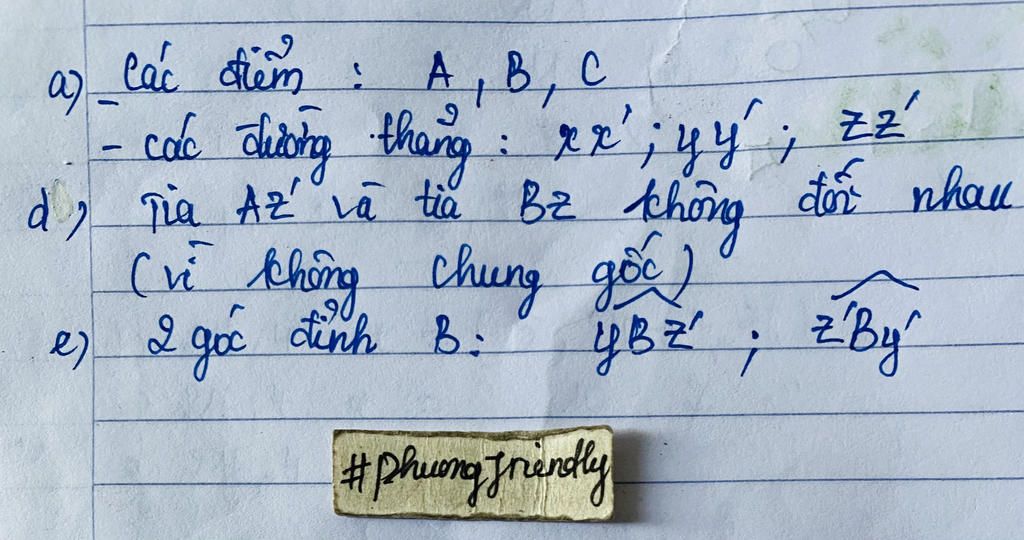 a) - Các điểm : A , B , C
- các đường thẳng : xx' ; yy' ; zz'
d) Tia Az' và tia Bz không đối nhau
(vì không chung gốc)
e) 2 góc đỉnh B: yBz' ; z'By'
#phuongfriendly